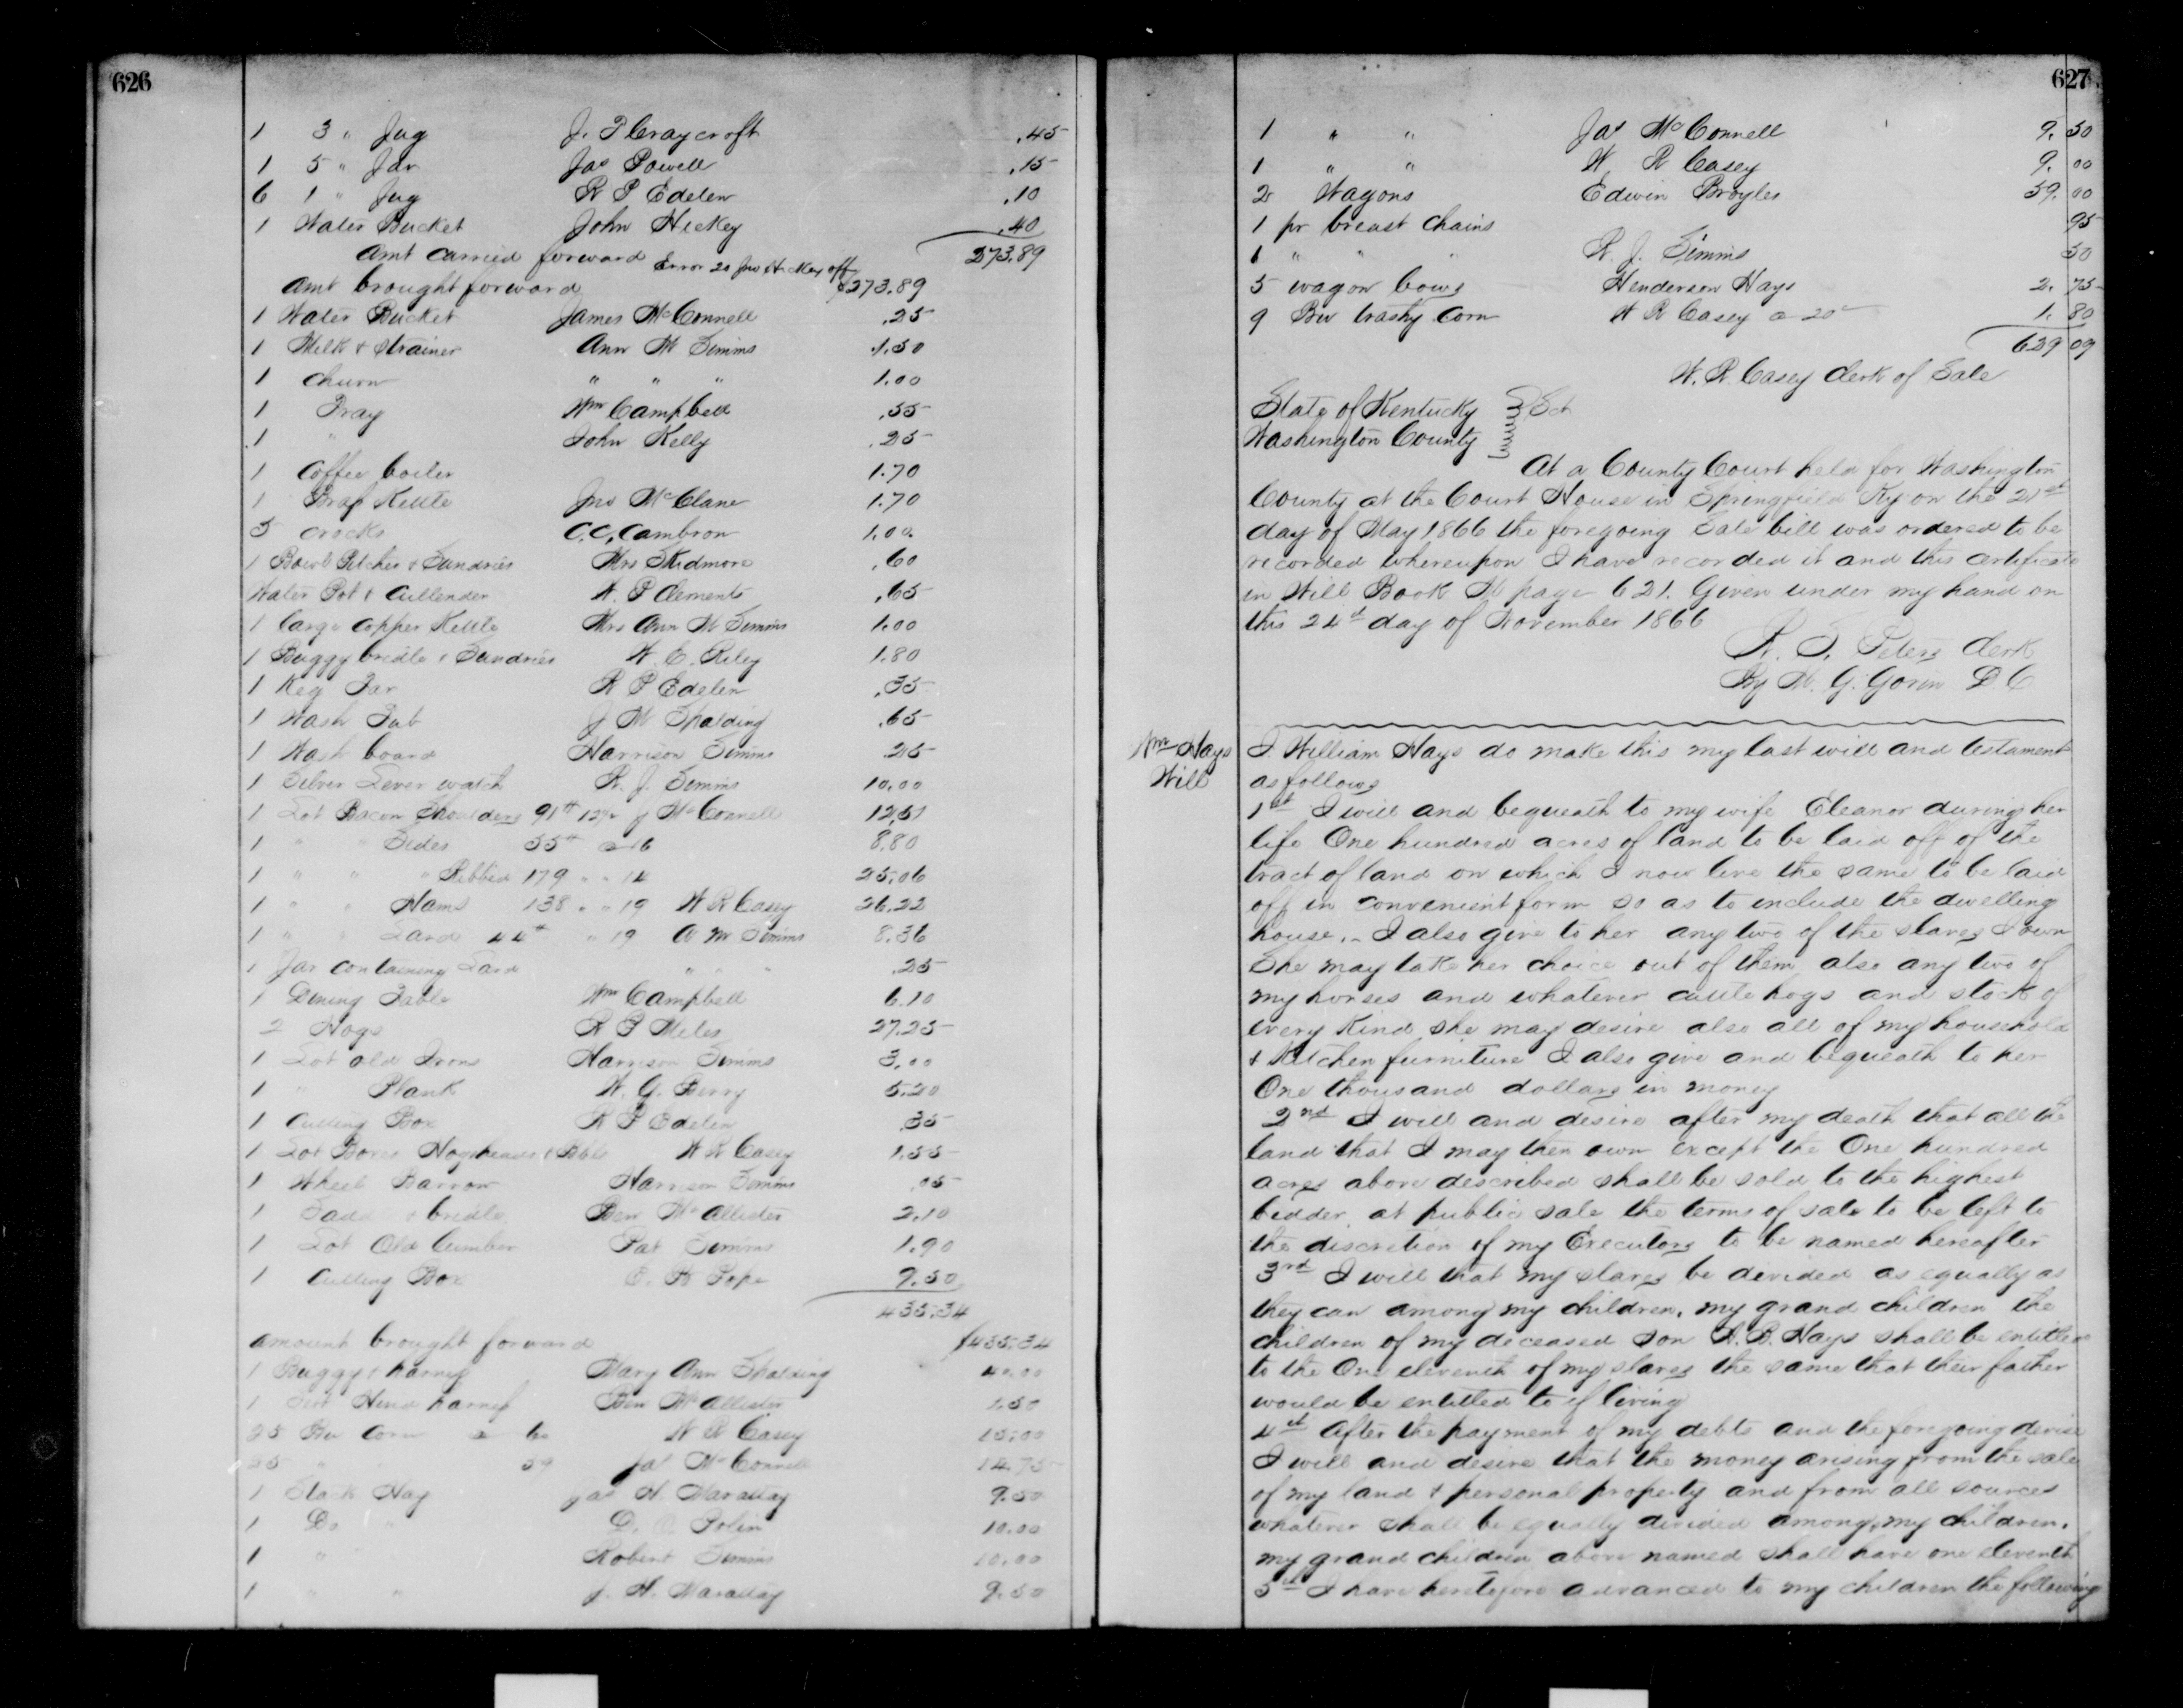 626
1 3 " Jug J. P Craycroft .45
1 5 " Jar Jas Powell .15
6 1 " Jug R P Edelen .10
1 Water Bucket John Hickey .40
Amt carried forward 273.89
Error 20 Jno Hickey off
Amt brought forward $273.89
1 Water Bucket James McConnell .25
1 Milk & Strainer Ann M Simms 1.50
1 Churn " " " 1.00
1 Tray Wm Campbell .55
1 " John Kelly .25
1 Coffee boiler 1.70
1 Brass Kettle Jno McClane 1.70
5 crocks C.C. Cambron 1.00
1 Bowl Pitcher & Sundries Mrs Skidmore .60
Water Pot & Cullender W. P Clements .65
1 large Copper Kettle Mrs Ann M Simms 1.00
1 Buggy bridle & Sundries W. C. Riley 1.80
1 Keg Tar R P Edelen .35
1 Wash Tub J M Spalding .65
1 Wash board Harrison Simms .25
1 Silver Lever watch R. J. Simms 10.00
1 Lot Bacon Shoulders 91 # J McConnell 12.51
1 " " Sides 55 # a 16 8.80
1 " " " Ribbed 179 " " 14 25.06
1 " " Hams 138 " " 19 W R Casey 26.22
1 " " Lard 44 # " 19 A M Simms 8.36
1 Jar containing Lard " " " .25
1 Dining Table Wm Campbell 6.10
2 Hogs R P Miles 27.25
1 Lot old Irons Harrison Simms 3.00
1 " Plank W. G. Berry 5.20
1 Cutting Box R P Edelen .35
1 Lot Boxes Hogsheads & Bbls W R Casey 1.55
1 Wheel Barrow Harrison Simms .05
1 Saddle & bridle Ben McAllister 2.10
1 Lot Old lumber Pat Simms 1.90
1 Cutting Box Pope 9.50
435.34
amount brought forward $435.34
1 Buggy & harness Mary Ann Spalding 40.00
1 Hind harness Ben McAllister 1.50
25 Bu Corn a 60 W R Casey 15.00
25 " " 59 Jas McConnell 14.75
1 Stack Hay Jas H. Marattay 9.50
1 Do " D. Polin 10.00
1 " Robert Simms 10.00
1 " " J. H. Marattay 9.50
627
1 " " Jas McConnell 9.50
1 " " W R Casey 9.00
2 Wagons Edwin Broyles 59.00
1 pr breast Chains 95
1 " " " R. J. Simms 50
5 wagon bows Henderson Hays 2.75
9 Bu trashy Corn W R Casey a 20c 1.80
629 09
W. R. Casey Clerk of Sale
State of Kentucky } Sct
Washington County
At a County Court held for Washington
County at the Court House in Springfield Ky on the 21st
day of May 1866 the foregoing Sale bill was ordered to be
recorded whereupon I have recorded it and this certificate
in Will Book M page 621. Given under my hand on
this 24th day of November 1866
R. S. Peters Clerk
By M. G. Gorin D.C
Wm Hays
Will
I. William Hays do make this my last will and testament
as follows
1st I will and bequeath to my wife Eleanor during her
life One hundred acres of land to be laid off of the
tract of land on which I now live the same to be laid
off in convenient form so as to include the dwelling
house. I also give to her any two of the slaves I own
She may take her choice out of them, also any two of
my horses and whatever cattle hogs and stock of
every kind she may desire also all of my household
& Kitchen furniture I also give and bequeath to her
One thousand dollars in money
2nd I will and desire after my death that all the
land that I may then own except the One hundred
acres above described shall be sold to the highest
bidder at public sale the terms of sale to be left to
the discretion of my Executors to be named hereafter
3rd I will that my slaves be divided as equally as
they can among my children. my grand children the
children of my deceased Son A. B. Hays shall be entitled
to the One eleventh of my slaves the same that their father
would be entitled to if living
4th After the payment of my debts and the foregoing devise
I will and desire that the money arising from the sale
of my land & personal property and from all sources
whatever shall be equally divided among my children.
my grand children above named shall have one eleventh
5th I have heretofore advanced to my children the following